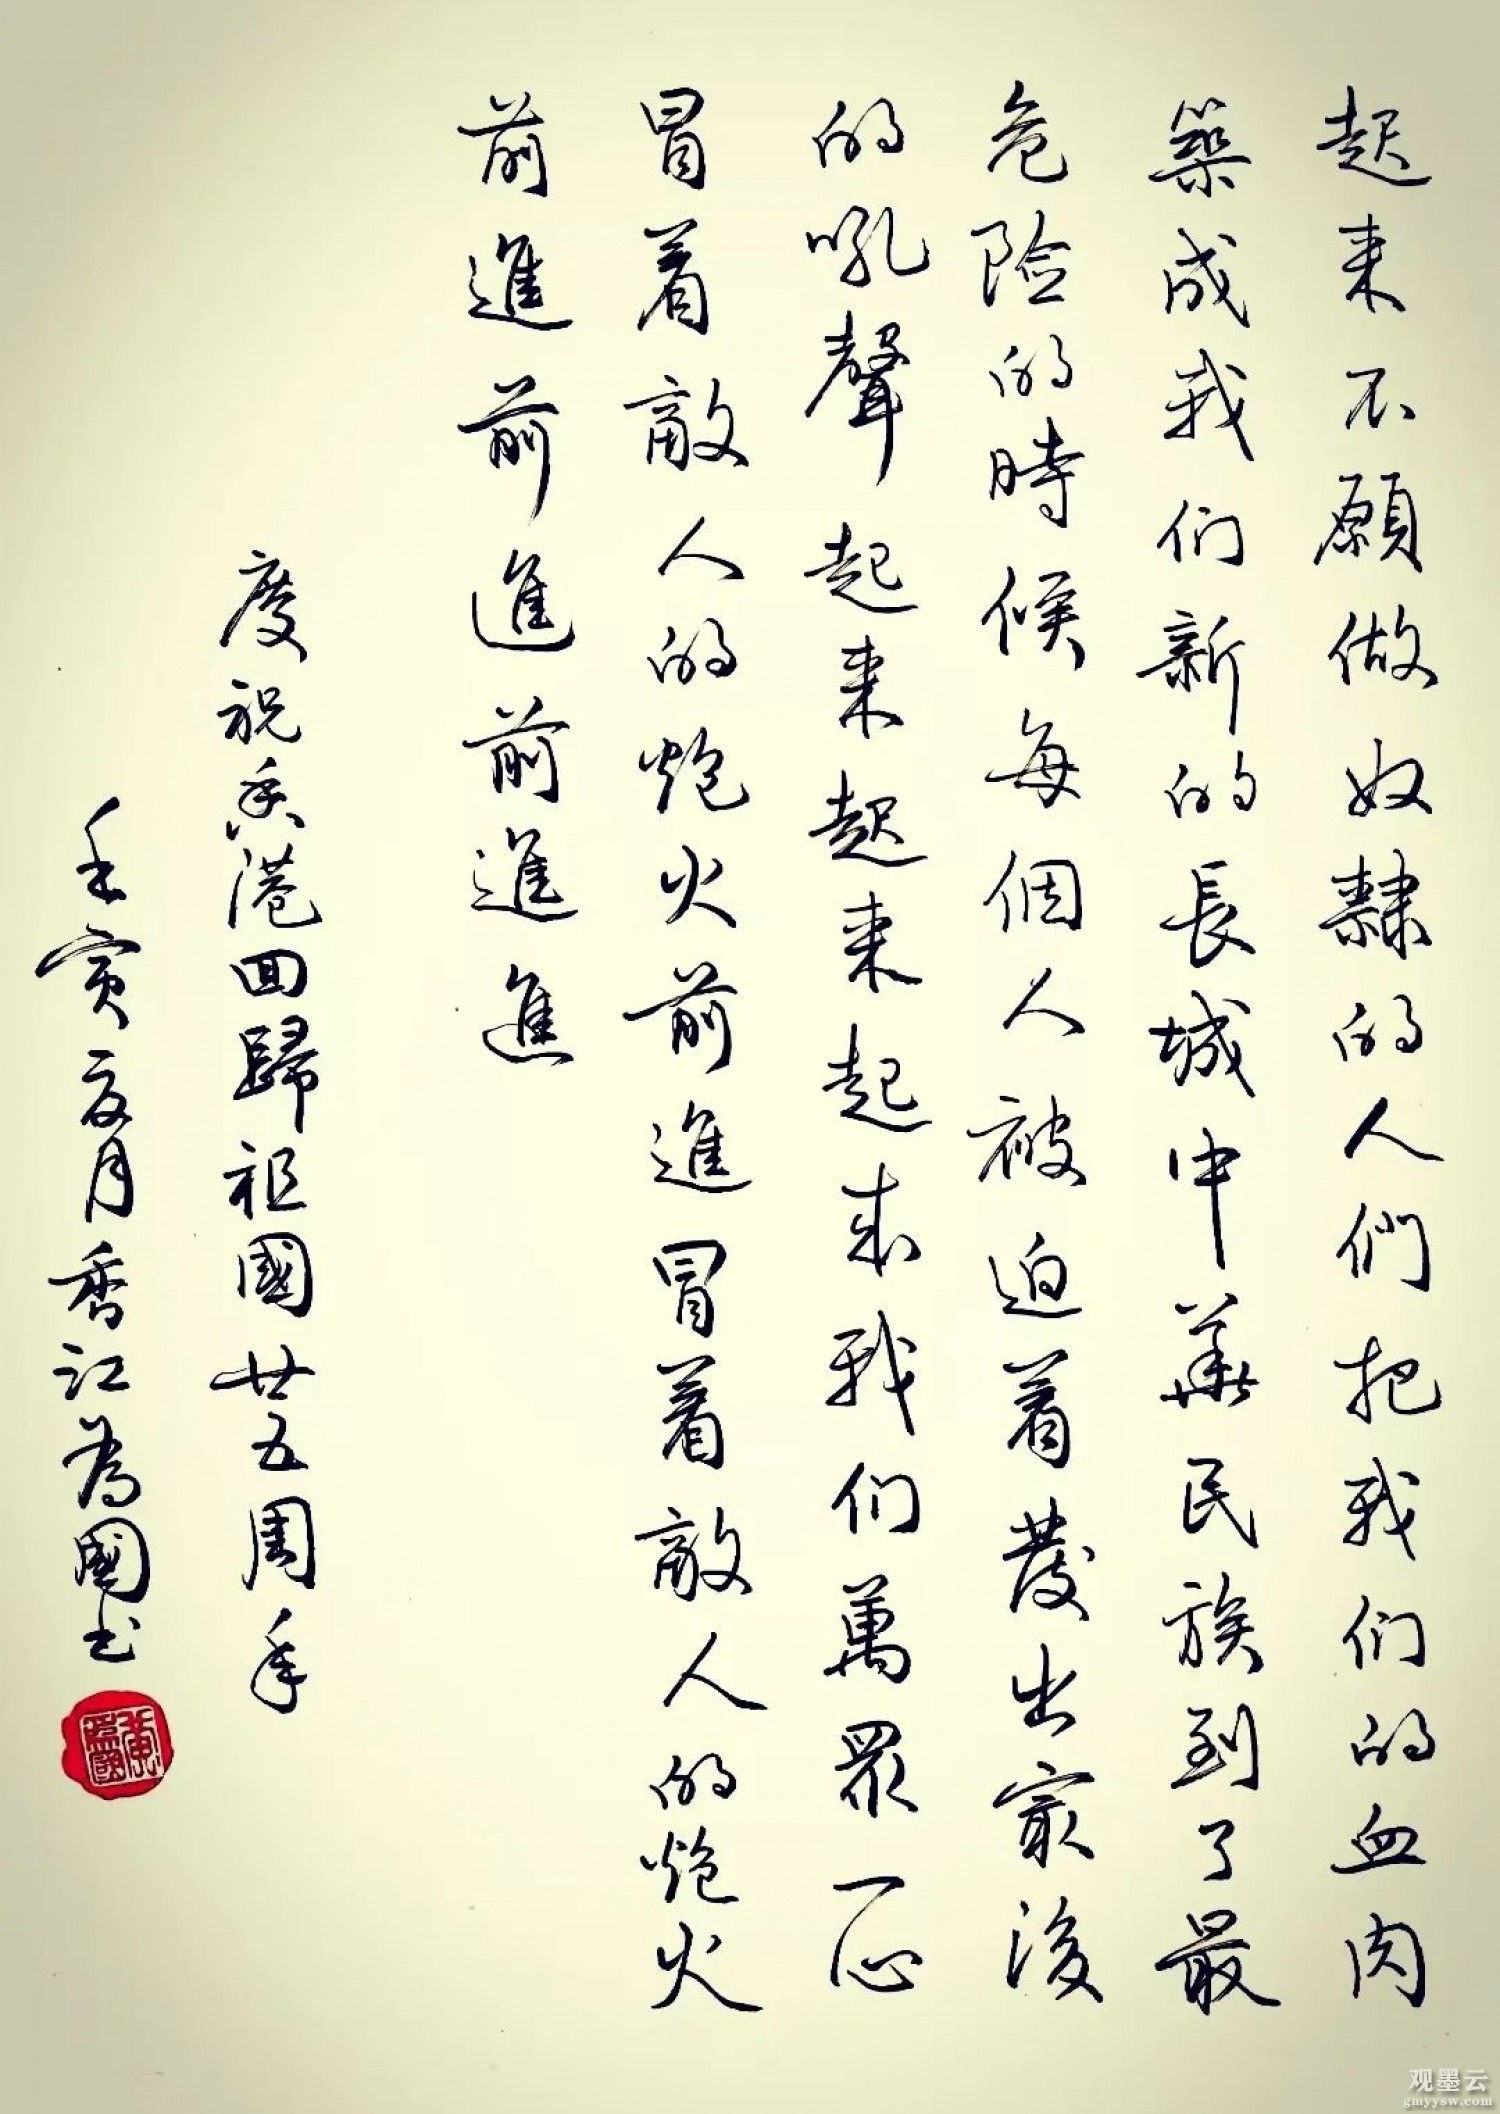 起来不願做奴隸的人們把我们的血肉
築成我们新的長城中華民族到了最
危险的時候每個人被迫着發出最後
的吼聲起来起来起来我们萬眾一心
冒着敵人的炮火前進冒着敵人的炮火
前進前進前進進
慶祝香港回歸祖國廿五周年
壬寅夏月香江為國书
黄為國
观墨云
gmyysw.com